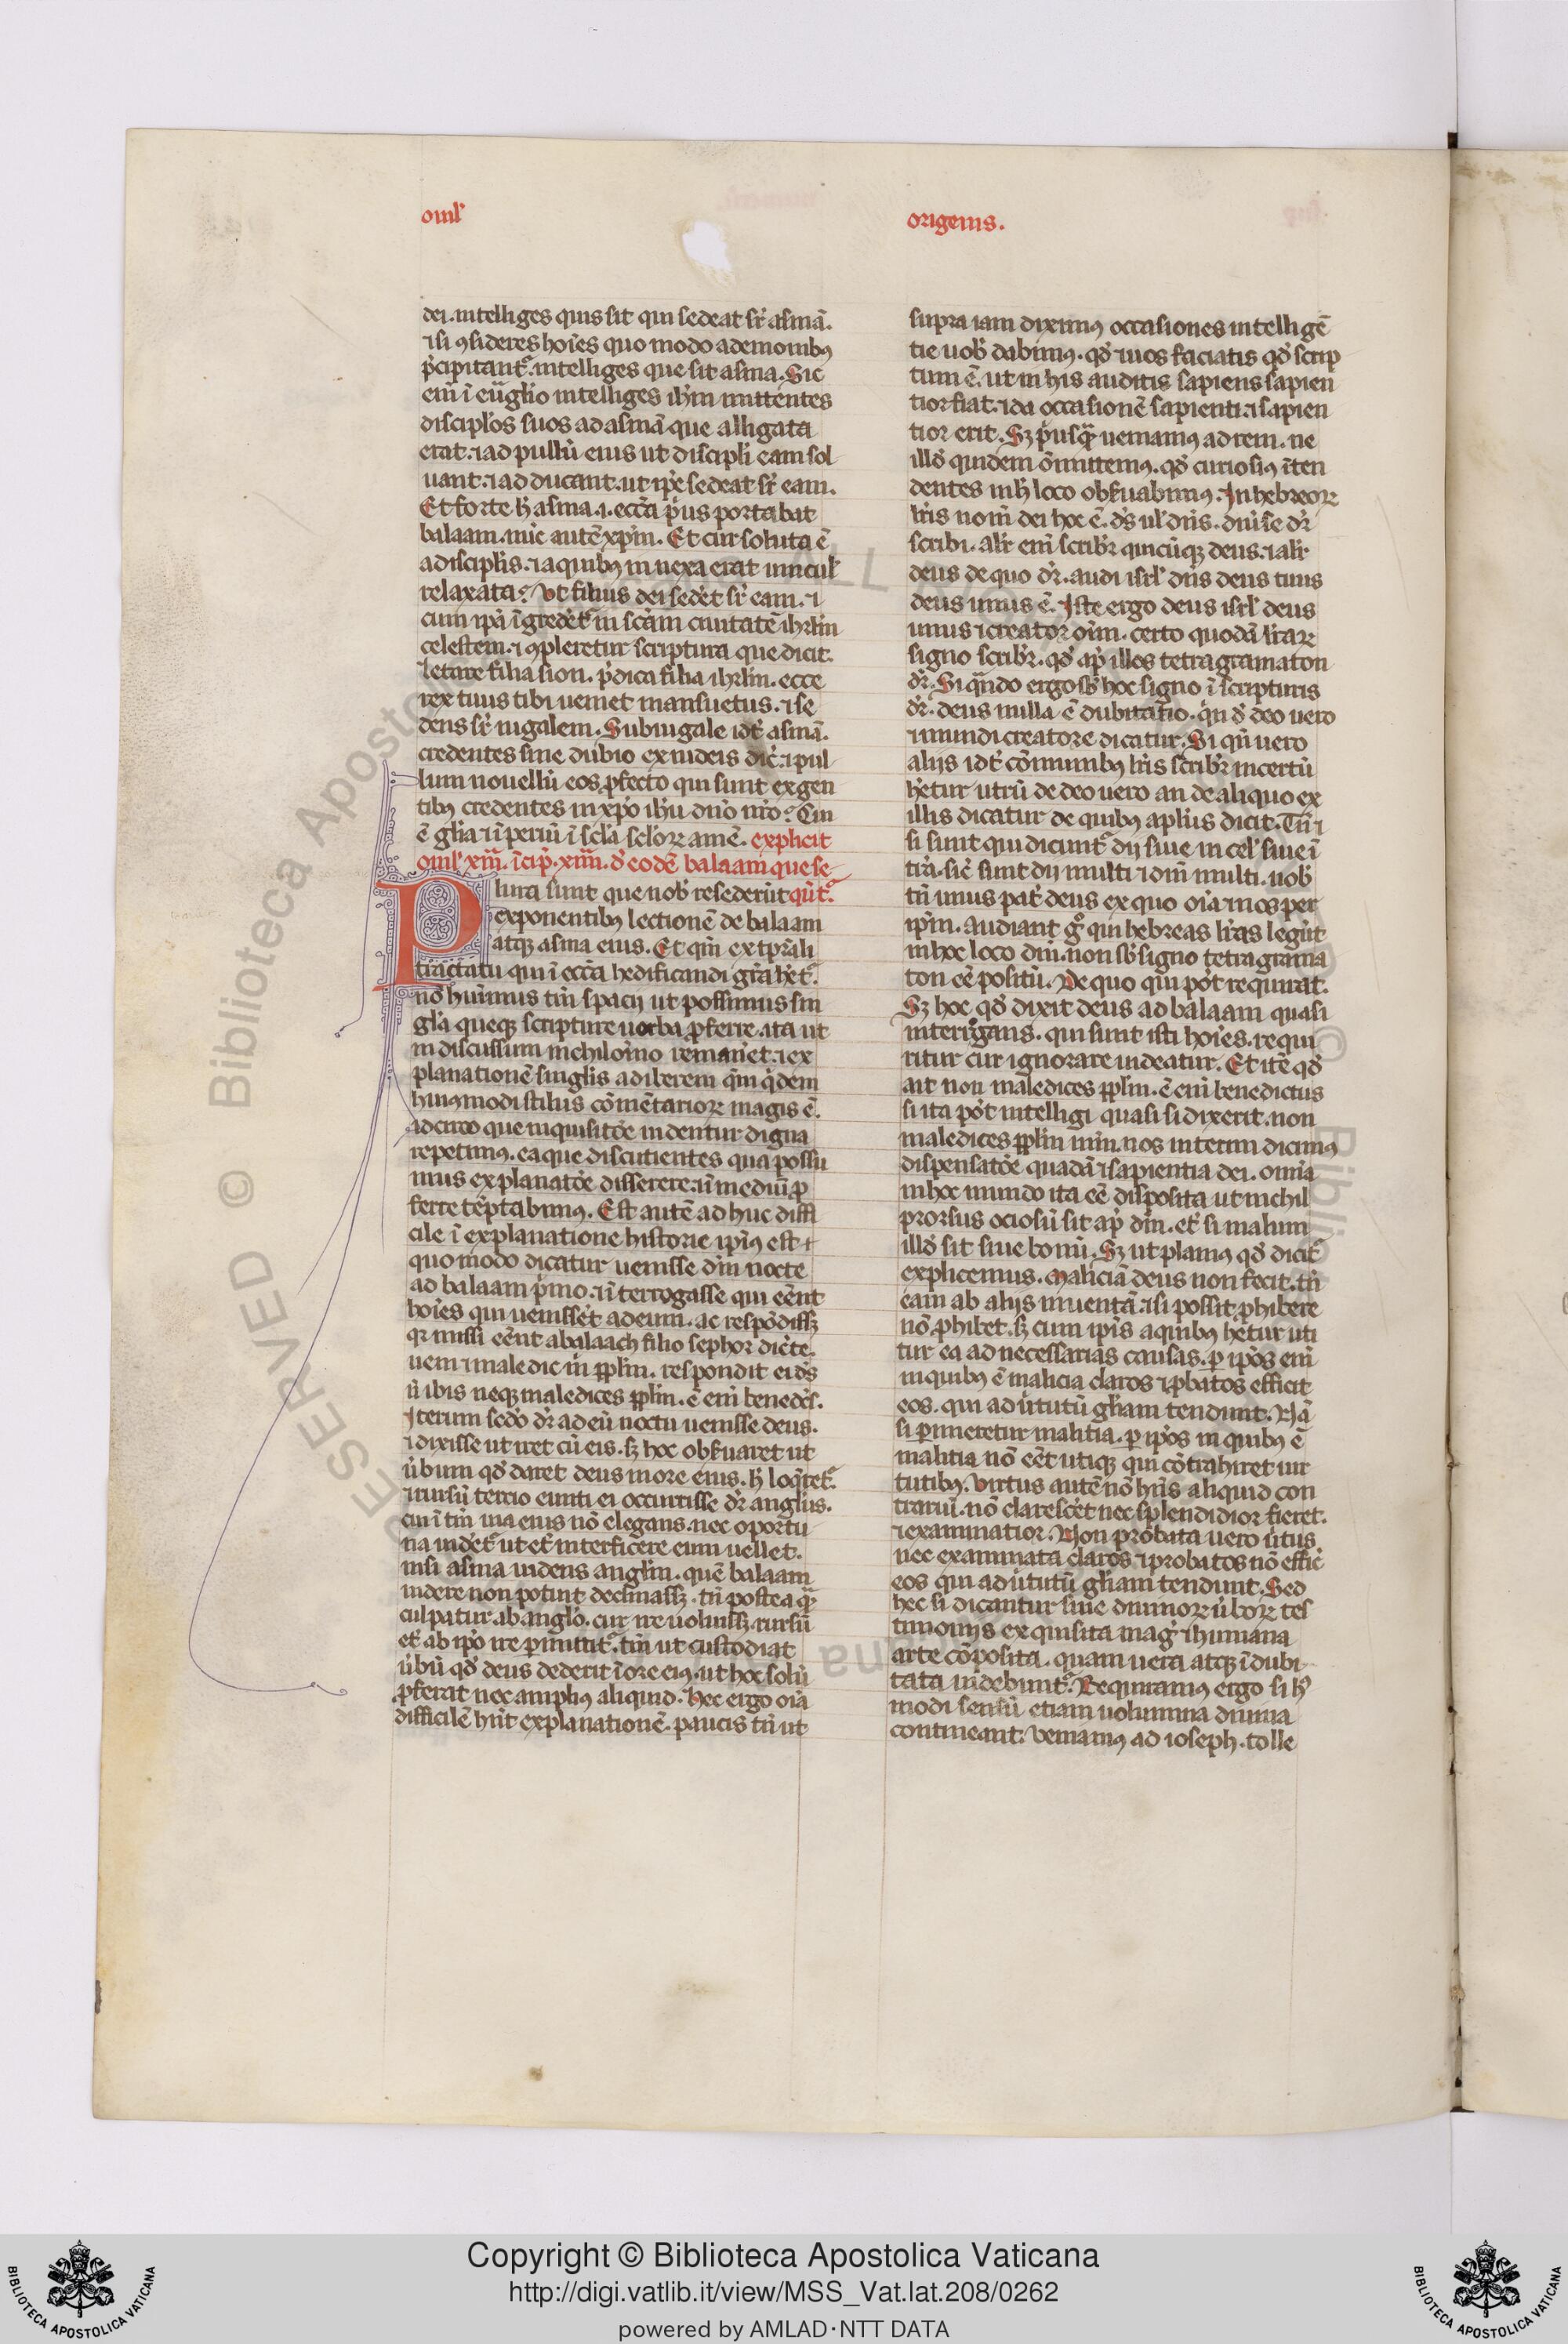 omīl'
origenis.
dei. intelliges quis sit qui sedeat sr̄ asinā.
⁊ si ꝯsideres hoīes quo modo a demonibꝰ
p̄cipitant᷑. intelliges que sit asina. Sic
eni ī eūglio intelliges ihm mittentes
discipl'os suos ad asinā que alligata
erat. ⁊ ad pullū eius ut discipli eam sol
uant. ⁊ ad ducant. ut ip̄e sedeat sr̄ eam.
Et forte h̄ asina .i. ecc̄a p̄us portabat
balaam. nūc autē xp̄m. Et cur soluta ē
a disciplis. ⁊ a quibꝰ in nexa erat uincul'
relaxata? Vt filius dei sedēt sr̄ eam. ⁊
cum ip̄a īgredēt᷑ in scām ciuitatē ihrlm
celestem. ⁊ ꝯpleretur scriptura que dicit.
letare filia sion. p̄dica filia ihrlm. ecce
rex tuus tibi ueniet mansuetus. ⁊ se
dens sr̄ iugalem. Subiugale idē asinā.
credentes sine dubio ex iudeis dic̄. ⁊ pul
lum nouellū. eos ꝓfecto qui sunt ex gen
tibꝰ credentes in xp̄o ihū dn̄o nr̄o. Cui
ē gl'ia ⁊ īperiū ī scl'a scl'oꝝ amē. explicit
omīl' xiii. īcip̄. xiiii. d' eodē balaam que se
Plura sunt que nob̄ resederūt qūt᷑
exponentibꝰ lectionē de balaam
atqꝫ asina eius. Et qm̄ ex tp̄ali
tractatu qui ī ecc̄a hedificandi gr̄a hēt᷑.
nō huimus tm̄ spacij ut possimus sin
gl'a queqꝫ scripture uerba ꝓferre. ita ut
in discussum nichil oīno remanēt. ⁊ ex
planationē singl'is adiberem qm̄ q̄dem
huiꝰmodi stilus cōmētarioꝝ magis ē.
Idcirco que inquisitōe uidentur digna
repetimꝰ. ea que discutientes qua possu
mus explanatōe disserere. ⁊ ī mediū ꝓ
ferre tēptabimꝰ. Est autē ad huc diffi
cile ī explanatione historie ip̄iꝰ est
quo modo dicatur uenisse dm̄ nocte
ad balaam p̄mo. ⁊ īterrogasse qui eēnt
hoīes qui uenissēt ad eum. ac respōdissꝫ
qꝛ missi eēnt a balaach filio sephor dicēte.
ueni ⁊ maledic m̄ ppl'm. respondit ei d̄s
n̄ ibis neqꝫ maledices ppl'm. ē eni benedc̄s.
Iterum sc̄do dr̄ ad eū noctu uenisse deus.
⁊ dixisse ut iret cū eis. sꝫ hoc obẜuaret ut
ūbum qd' daret deus in ore eius. h̄ loq̄ret᷑.
⁊ rursū tercio eunti ei occurrisse dr̄ angl'us.
cui ī tm̄ uia eius nō elegans. nec oportu
na uidēt᷑ ut et̄ interficere eum uellet.
nisi asina uidens angl'm. quē balaam
uidere non potuit declinassꝫ. tn̄ postea q̄
culpatur ab angl'o. cur ire uoluissꝫ. rursū
et̄ ab ip̄o ire ꝑmittit᷑. tm̄ ut custodiat
ūbū qd' deus dederit ī ore eiꝰ. ut hoc solū
ꝓferat nec ampliꝰ aliquid. Hec ergo oīa
difficilē hn̄t explanationē. paucis tn̄ ut
supra iam diximꝰ occasiones intelligē
tie uob̄ dabimꝰ. qd' ⁊ uos faciatis qd' scrip
tum ē. ut in his auditis sapiens sapien
tior fiat. ⁊ da occasionē sapienti. ⁊ sapien
tior erit. Sꝫ p̄usqꝫ ueniamꝰ ad rem. ne
illd' quidem ōmittemꝰ. qd' curiosiꝰ īten
dentes in h̄ loco obẜuabimꝰ. In hebreoꝝ
lr̄is nom̄ dei hoc ē. d̄s ul' dn̄s. diūse dr̄
scribi. alr̄ eni scribr̄ quicūqꝫ deus. ⁊ alr̄
deus de quo dr̄. audi isrl' dn̄s deus tuus
deus unus ē. Iste ergo deus isrl' deus
unus ⁊ creator oīm. certo quodā lr̄aꝝ
signo scribr̄. qd' ap̄ illos tetragramaton
dr̄. Si qn̄do ergo sb̄ hoc signo ī scripturis
dr̄. deus nulla ē dubitatio. qn̄ d' deo uero
⁊ mundi creatore dicatur. Si qn̄ uero
alijs idē cōmunibꝰ lr̄is scribr̄ incertū
hētur utrū de deo uero an de aliquo ex
illis dicatur de quibꝰ apl'us dicit. Tn̄ ⁊
si sunt qui dicunt᷑ dij siue in cel' siue ī
tr̄a. sic̄ sunt dij multi ⁊ dn̄i multi. nob̄
tn̄ unus pat̄ deus ex quo oīa ⁊ nos per
ip̄m. Audiant gͦ qui hebreas lr̄as legūt
in hoc loco dm̄. non sb̄ signo tetragrama
ton eē positū. De quo qui pōt requirat.
Sꝫ hoc qd' dixit deus ad balaam quasi
interrogans. qui sunt isti hoīes. requi
ritur cur ignorare uideatur. Et itē qd'
ait non maledices ppl'm. ē eni benedictus
si ita pōt intelligi quasi si dixerit. non
maledices ppl'm mm̄. nos interim dicimꝰ
dispensatōe quadā ⁊ sapientia dei. omīa
in hoc mundo ita eē disposita ut nichil
prorsus ociosū sit ap̄ dm̄. et̄ si malum
illd' sit siue bonū. Sꝫ ut planiꝰ qd' dicit᷑
explicemus. Maliciā deus non fecit. tn̄
eam ab alijs inuentā. ⁊ si possit ꝓhibere
nō ꝓhibet. sꝫ cum ip̄is a quibꝰ hētur uti
tur ea ad necessarias causas. ꝑ ip̄os eni
in quibꝰ ē malicia claros ⁊ ꝓbatos efficit
eos. qui ad ūtutū gl'iam tendunt. Nā
si ꝑimeretur malitia. ꝑ ip̄os in quibꝰ ē
malitia nō eēt utiqꝫ qui cōtrahiret uir
tutibꝰ. Virtus autē nō hn̄s aliquid con
trariū. nō claresceēt nec splendidior fieret.
⁊ examinatior. Non probata uero ūtus
nec examinata claros ⁊ probatos nō effic̄
eos qui ad ūtutū gl'iam tendunt. Sed
hec si dicantur siue diuinoꝝ ūboꝝ tes
timonijs exquisita mag̃ ⁊ humana
arte cōposita. quam uera atqꝫ īdubi
tata uidebunt᷑. Requiramus ergo si h̄
modi sensū etiam uolumina diuina
contineant. Veniamꝰ ad ioseph. tolle
Copyright © Biblioteca Apostolica Vaticana
http://digi.vatlib.it/view/MSS_Vat.lat.208/0262
powered by AMLAD·NTT DATA